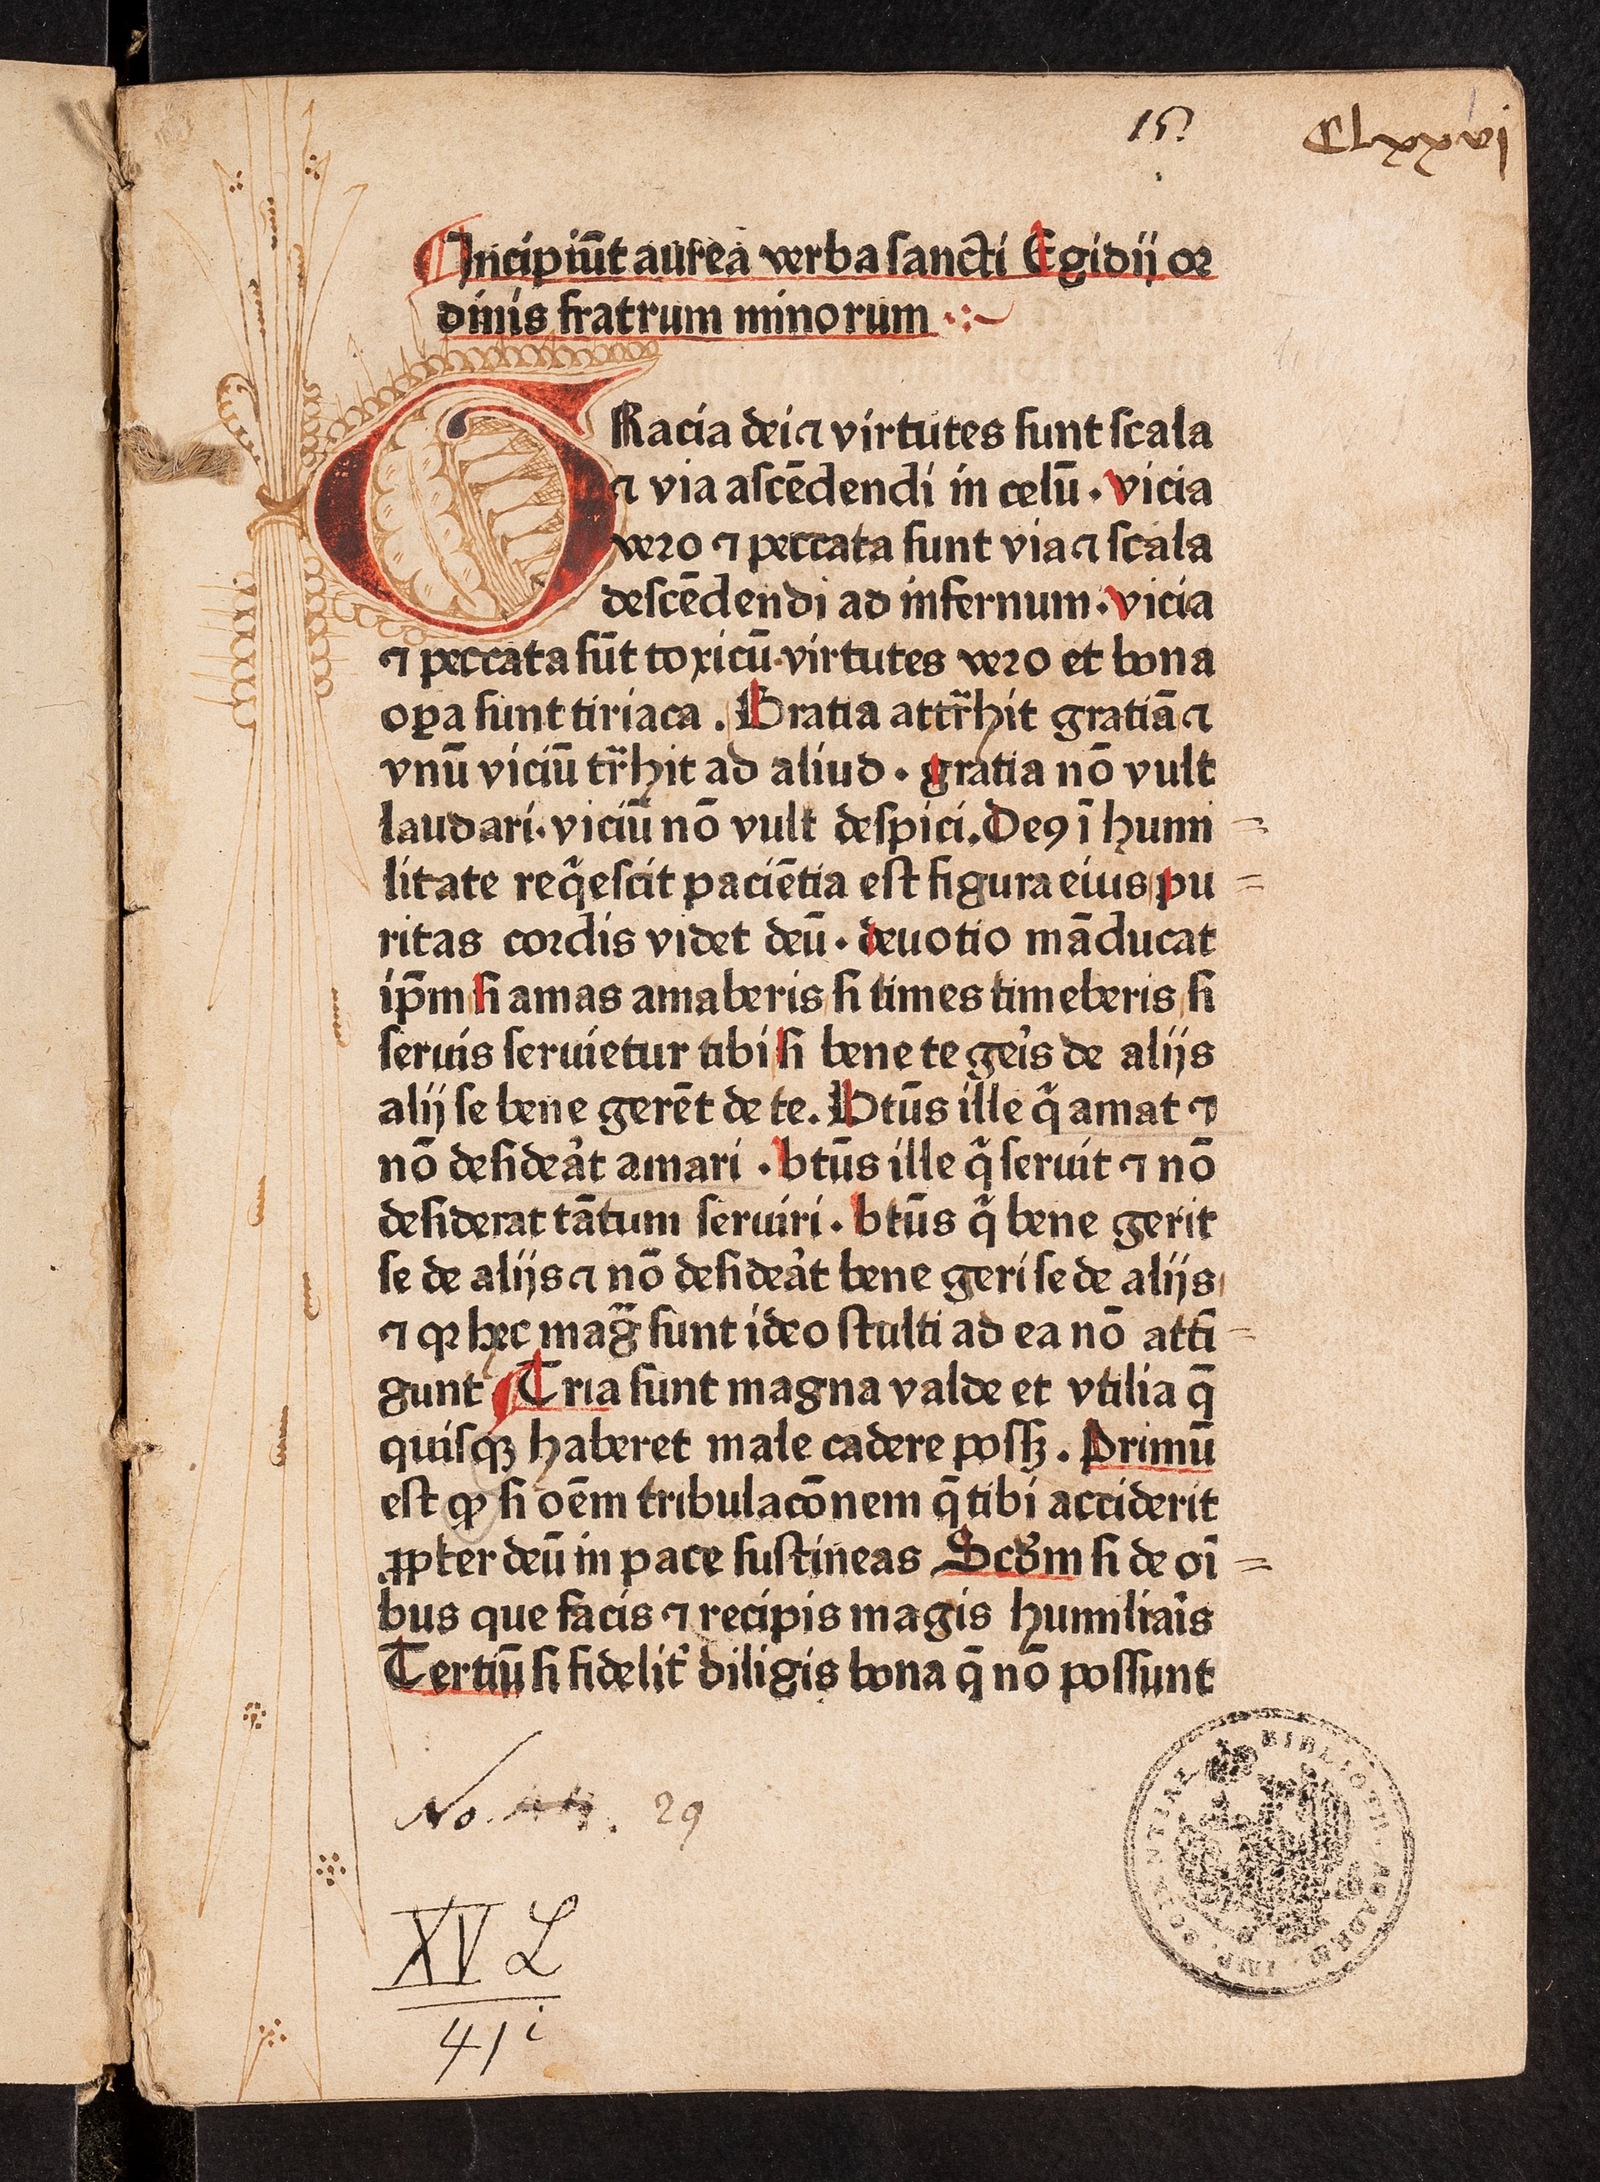 15
Clxxvi
Incipiūt aurea verba sancti Egidij or
dinis fratrum minorum
GRacia dei ⁊ virtutes sunt scala
⁊ via ascēdendi in celū . vicia
vero ⁊ peccata sunt via ⁊ scala
descēdendi ad infernum . vicia
⁊ peccata sūt toxicū . virtutes vero et bona
oꝑa sunt tiriaca . Gratia attr̃hit gratiā ⁊
vnū viciū tr̃hit ad aliud . gratia nō vult
laudari . viciū nō vult despici . Deꝰ ī humi
litate reqͥescit paciētia est figura eius pu
ritas cordis videt deū . deuotio māducat
ip̄m si amas amaberis si times timeberis si
seruis seruietur tibi si bene te geris de alijs
alij se bene gerēt de te . Btūs ille qͥ amat ⁊
nō desideat̉ amari . btūs ille qͥ seruit ⁊ nō
desiderat tātum seruiri . btūs qͥ bene gerit
se de alijs ⁊ nō desideat̉ bene geri se de alijs
⁊ qꝛ hec mag̃ sunt ideo stulti ad ea nō atti
gunt Tria sunt magna valde et vtilia q̄
quisqꝫ haberet male cadere possꝫ . Primū
est ꝙ si oēm tribulacōnem q̄ tibi acciderit
ꝓpter deū in pace sustineas Scd̉m si de oī
bus que facis ⁊ recipis magis humiliar̉s
Tertiū si fidelit̉ diligis bona q̄ nō possunt
No. 29
XV L
41 i
BIBLIOTH. ACADEM.